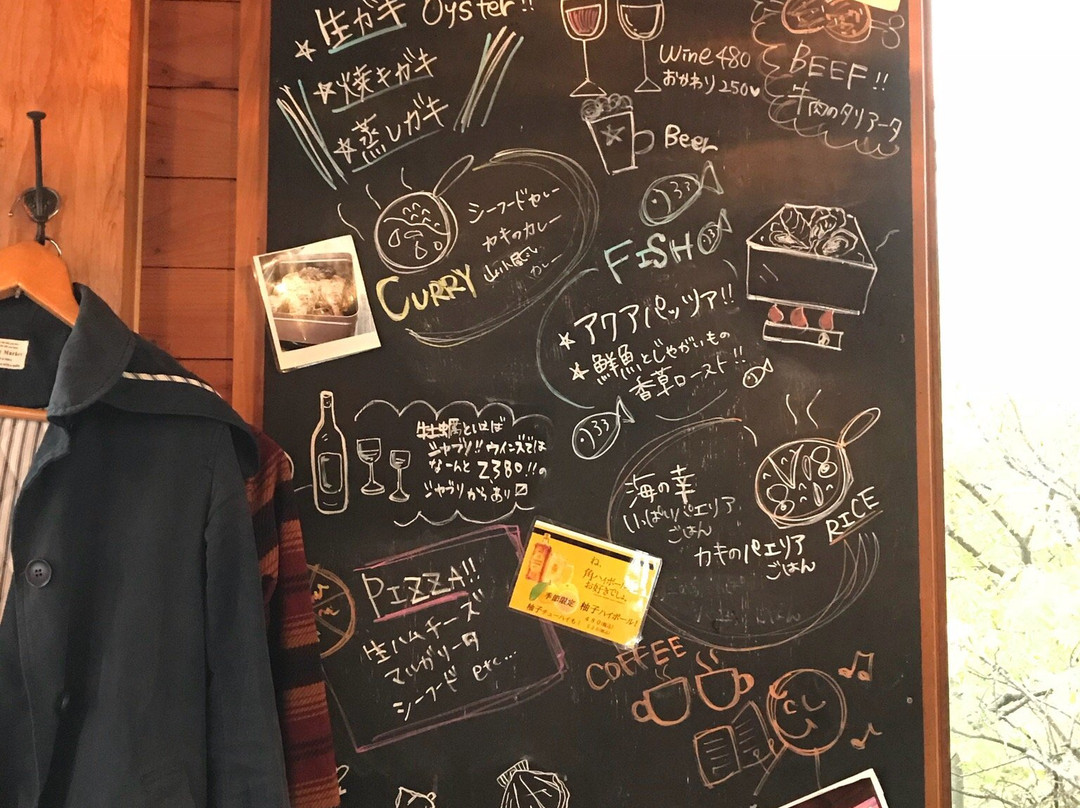 生ガキ Oyster!!
☆焼キガキ
☆蒸しガキ
Wine 480
おかわり 250♥
Beer
BEEF!!
牛肉のタリアータ
シーフードカレー
カキのカレー
カレー
CURRY
FISH
☆アクアパッツァ!!
☆鮮魚とじゃがいもの
香草ロースト!!
牡蠣といえば
シャブリ!!ウインズでは
なーんと2,380!!の
シャブリからあり〼
海の幸
いっぱいパエリア
ごはん
カキのパエリア
ごはん
RICE
PIZZA!!
生ハムチーズ
マルガリータ
シーフード etc...
ね、
角ハイボール
お好きでしょ
季節限定 柚子ハイボール!
COFFEE